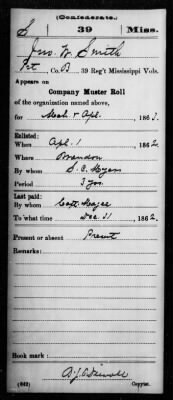 (Confederate.)
S 39 Miss.
Jno. W. Smith
Pvt, Co. B, 39 Reg't Mississippi Vols.
Appears on
Company Muster Roll
of the organization named above,
for Mch & Apl, 1863.
Enlisted:
When Apl. 1, 1862.
Where Brandon
By whom S. C. Myers
Period 3 yrs.
Last paid:
By whom Capt. Magee
To what time Dec. 31, 1862.
Present or absent Present
Remarks:
Book mark:
(642) Copyist.